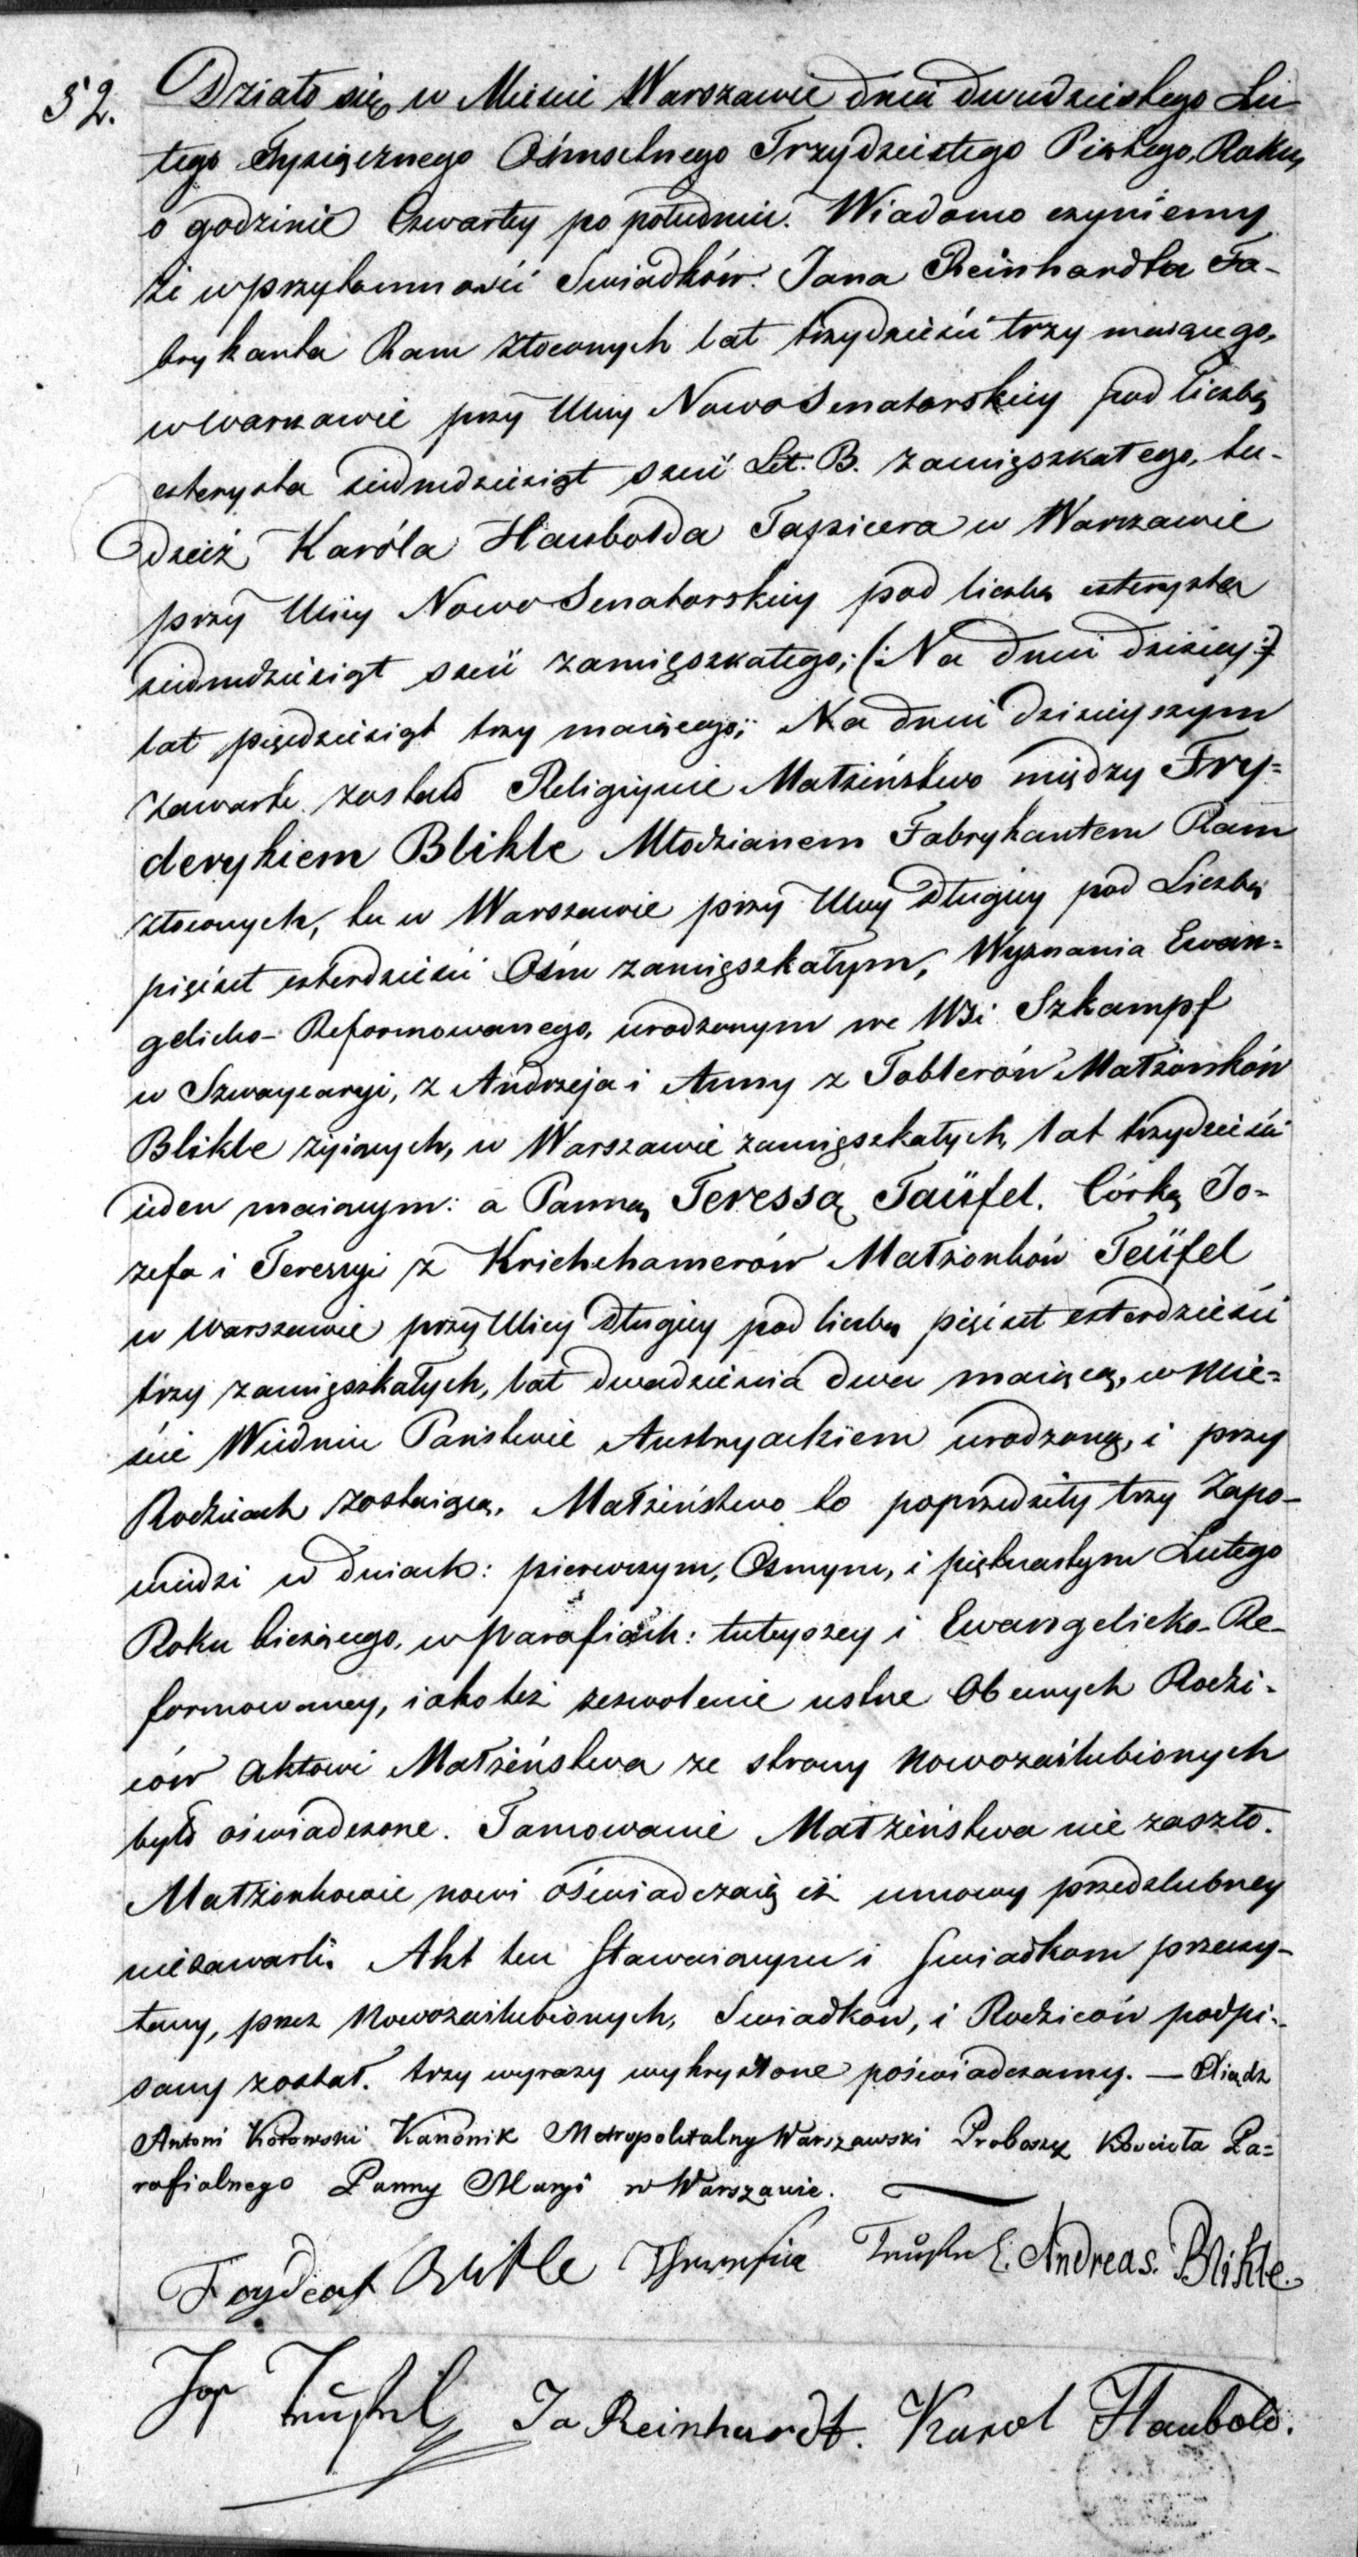 52. Działo się w Mieście Warszawie dnia dwudziestego Lu-
tego Tysiącznego Ośmsetnego Trzydziestego Piątego, Roku,
o godzinie Czwartey po południu. Wiadomo czyniemy
że w przytomności Swiadków: Jana Reinhardta Fa-
brykanta Ram złoconych lat trzydzieści trzy maiącego,
w Warszawie przy Ulicy Nowo Senatorskiey pod liczbą
czterysta siedmdziesiąt sześć Let. B. zamięszkałego, tu-
dzież Karóla Haubolda Tapicera w Warszawie
przy Ulicy Nowo Senatorskiey pod liczbą czterysta
siedmdziesiąt sześć zamięszkałego; (: Na dniu dzisiey :)
lat pięcdziesiąt trzy maiącego; Na dniu dzisieyszym
zawarte zostało Religiynie Małżeństwo między Fry=
derykiem Blikle Młodzianem Fabrykantem Ram
złoconych, tu w Warszawie przy Ulicy Długiey pod Liczbą
pięćset czterdzieści Ośm zamięszkałym, Wyznania Ewan=
gelicko-Reformowanego, urodzonym we Wsi Szkampf
w Szwaycaryi, z Andrzeja i Anny z Toblerów Małżonków
Blikle żyiących, w Warszawie zamięszkałych, lat trzydzieści
ieden maiącym: a Panną Teressą Taüfel. Córką Jo-
zefa i Teressyi z Krichhamerów Małżonków Teüfel
w Warszawie przy Ulicy Długiey pod liczbą pięćset czterdzieści
trzy zamięszkałych, lat dwadzieścia dwa maiącą, w Mie=
ście Wiedniu Państwie Austryackiem urodzoną, i przy
Rodzicach zostaiącą. Małżeństwo to poprzedziły trzy Zapo-
wiedzi w dniach: pierwszym, Osmym, i piętnastym Lutego
Roku bieżącego, w Parafiach: tuteyszey i Ewangelicko-Re-
formowaney, iako też zezwolenie ustne Obecnych Rodzi-
ców Aktowi Małżeństwa ze strony Nowozaślubionych
było oświadczone. Tamowanie Małżeństwa nie zaszło.
Małżonkowie nowi oświadczaią iż umowy przedślubney
niezawarli. Akt ten Stawaiącym i Swiadkom przeczy-
tany, przez Nowozaślubionych, Swiadków, i Rodziców podpi-
sany został. trzy wyrazy wykryślone poświadczamy. — Xiądz
Antoni Kotowski Kanonik Metropolitalny Warszawski Proboszcz Kościoła Pa=
rafialnego Panny Maryi w Warszawie.
Frydryk Blikle Theresia Teüfel Andreas. Blikle.
Jos Teufel Ja Reinhardt. Karol Haubold.